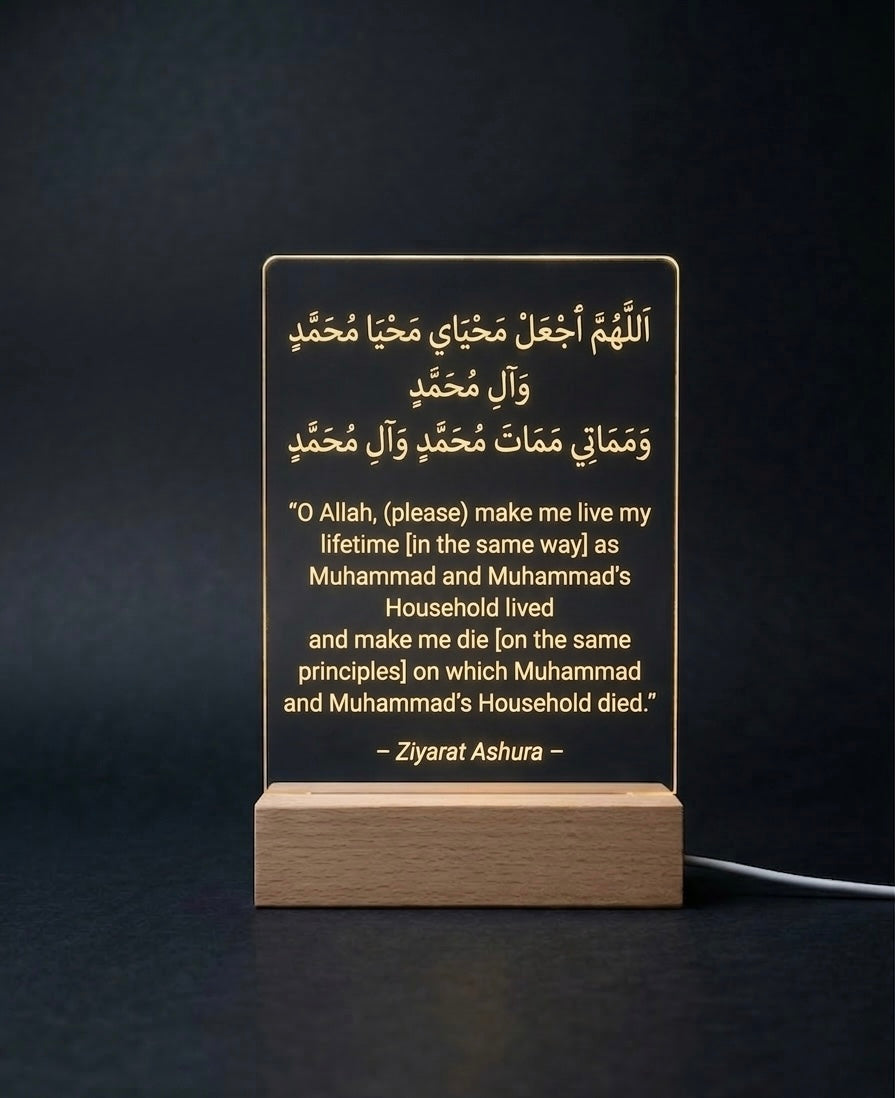 اَللَّهُمَّ ٱجْعَلْ مَحْيَايَ مَحْيَا مُحَمَّدٍ
وَآلِ مُحَمَّدٍ
وَمَمَاتِي مَمَاتَ مُحَمَّدٍ وَآلِ مُحَمَّدٍ
“O Allah, (please) make me live my
lifetime [in the same way] as
Muhammad and Muhammad’s
Household lived
and make me die [on the same
principles] on which Muhammad
and Muhammad’s Household died.”
– Ziyarat Ashura –